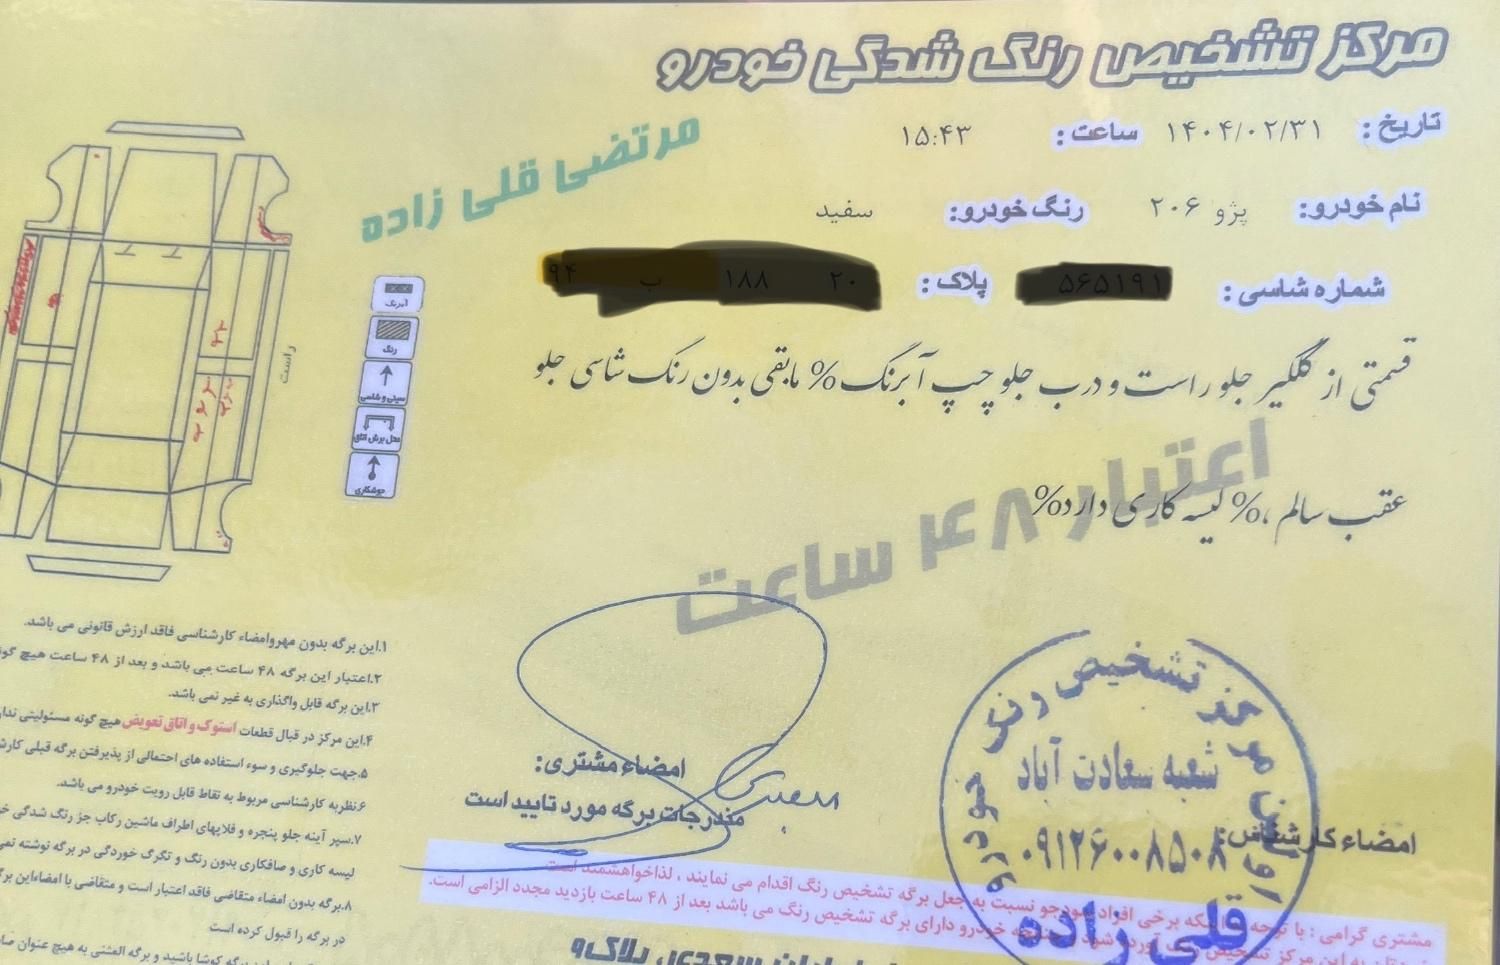 مرکز تشخیص رنگ شدگی خودرو
تاریخ: ۱۴۰۴/۰۲/۳۱ ساعت: ۱۵:۴۳
مرتضی قلی زاده
نام خودرو: پژو ۲۰۶ رنگ خودرو: سفید
شماره شاسی: پلاک:
قسمتی از گلگیر جلو راست و درب جلو چپ آبرنگ% مابقی بدون رنگ شاسی جلو
عقب سالم ،% لیسه کاری دارد%
اعتبار ۴۸ ساعت
راست
آبرنگ
رنگ
سینی و شاسی
محل برش اتاق
جوشکاری
۱.این برگه بدون مهروامضاء کارشناسی فاقد ارزش قانونی می باشد.
۲.اعتبار این برگه ۴۸ ساعت می باشد و بعد از ۴۸ ساعت هیچ
۳.این برگه قابل واگذاری به غیر نمی باشد.
۴.این مرکز در قبال قطعات استوک و اتاق تعویض هیچ گونه مسئولیتی
۵.جهت جلوگیری و سوء استفاده های احتمالی از پذیرفتن برگه قبلی
۶.نظریه کارشناسی مربوط به نقاط قابل رویت خودرو می باشد.
۷.سپر آینه جلو پنجره و قلابهای اطراف ماشین رکاب جز رنگ شدگی
لیسه کاری و صافکاری بدون رنگ و تگرگ خوردگی در برگه نوشته
۸.برگه بدون امضاء متقاضی فاقد اعتبار است و متقاضی با امضاء این
در برگه را قبول کرده است
امضاء مشتری:
مندرجات برگه مورد تایید است
امضاء کارشناس:
اولین مرکز تشخیص رنگ خودرو
شعبه سعادت آباد
۰۹۱۲۶۰۰۸۵۰۸
قلی زاده
مشتری گرامی : با توجه به اینکه برخی افراد سودجو نسبت به جعل برگه تشخیص رنگ اقدام می نمایند ، لذا خواهشمند است
خودرو دارای برگه تشخیص رنگ می باشد بعد از ۴۸ ساعت بازدید مجدد الزامی است.